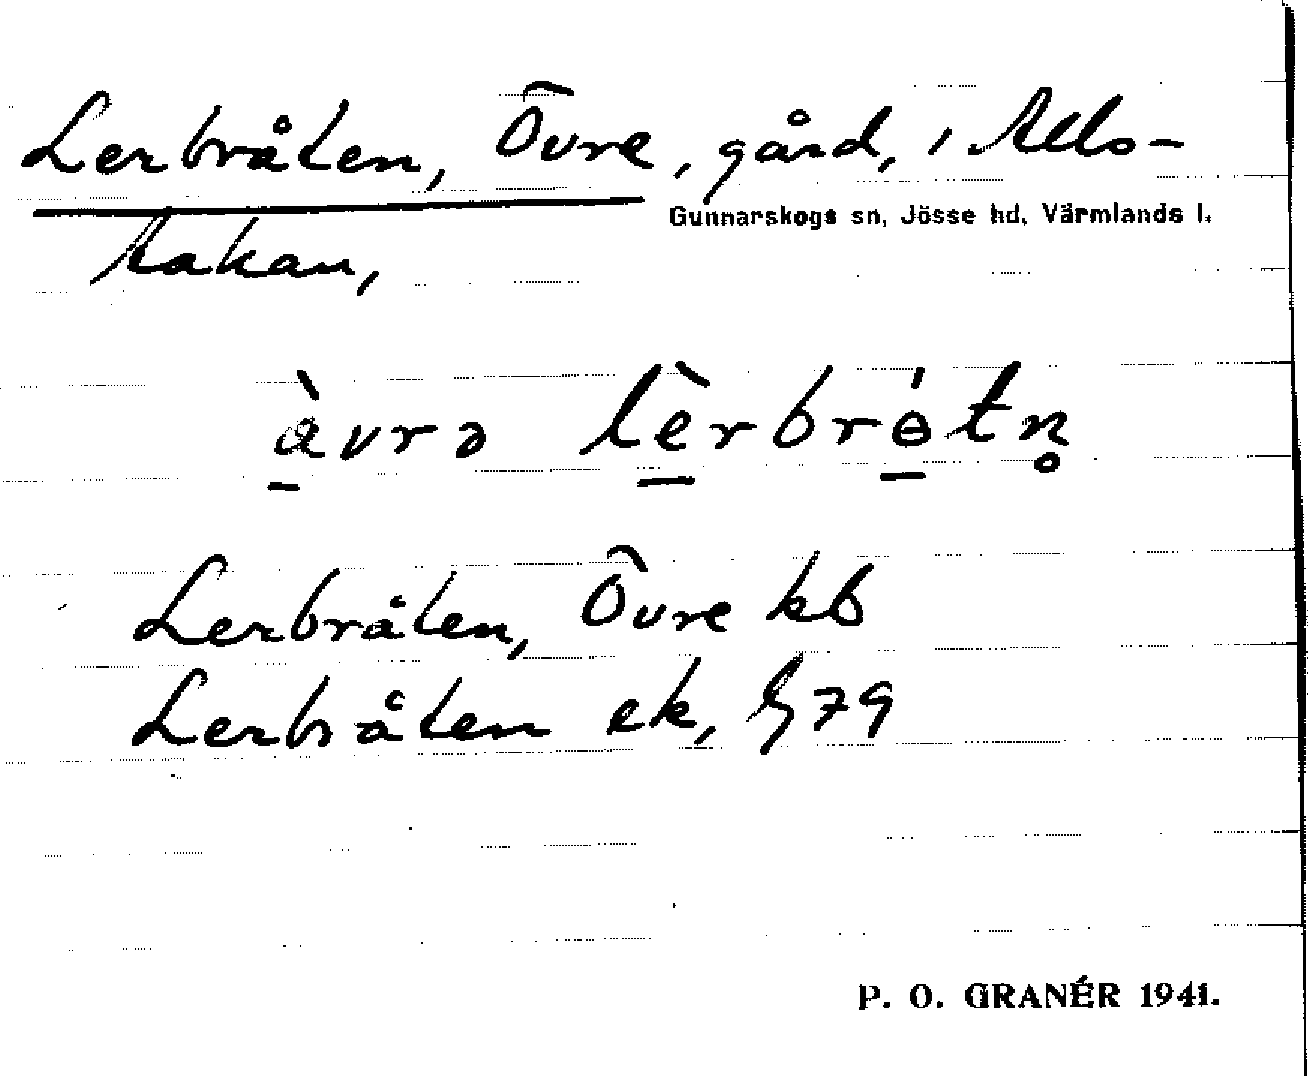 Lerbråten, Övre, gård, i Alls-
Gunnarskogs sn, Jösse hd, Värmlands l.
takan,
àvrə lèrbrɵ́tn̥
Lerbråten, Övre kb
Lerbråten ek, G 79
P. O. GRANÉR 1941.